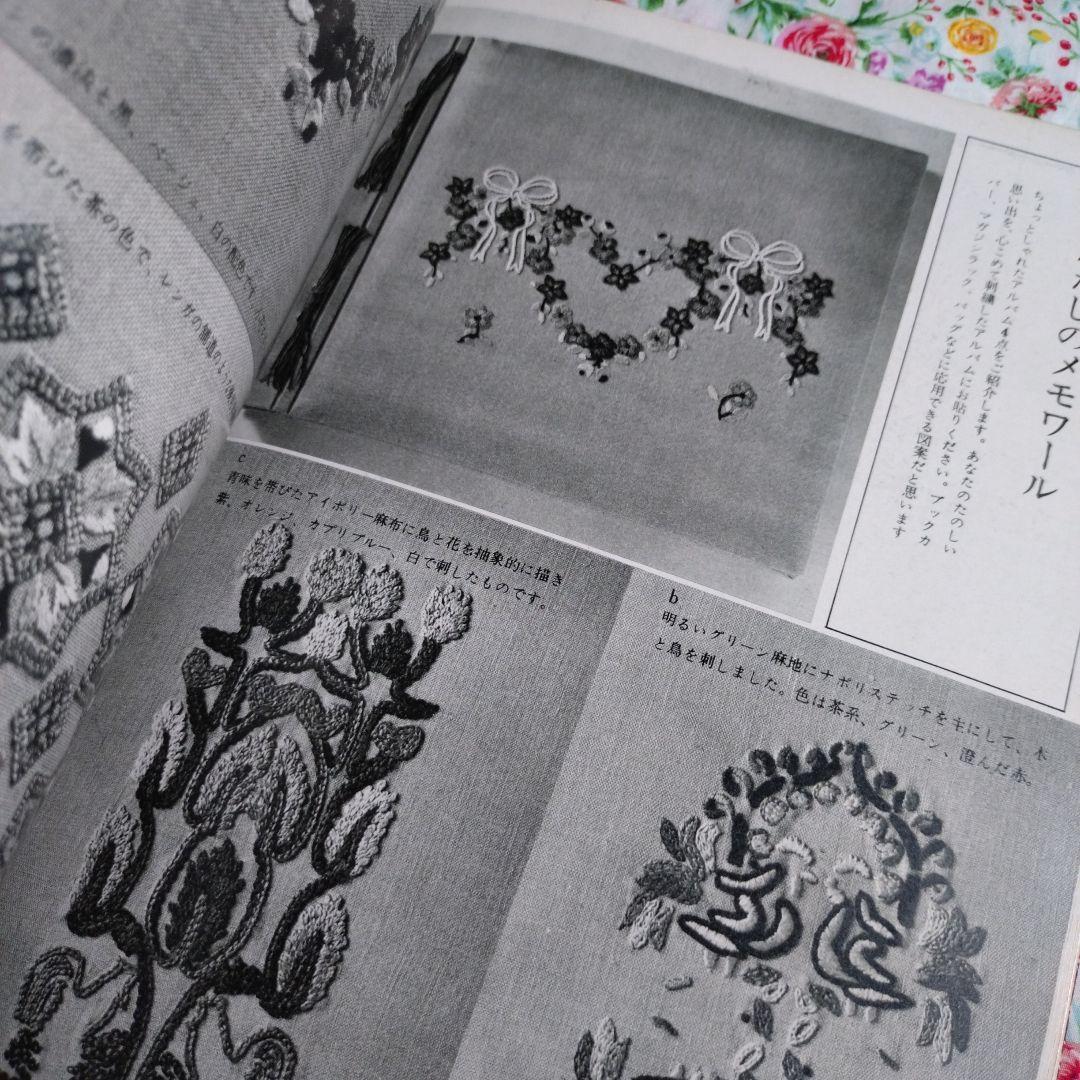 たしのメモワール
ちょっとしゃれたアルバム4点をご紹介します。あなたのたのしい
思い出を、心こめて刺繍したアルバムにお貼りください。ブックカ
バー、マガジンラック、バッグなどに応用できる図案だと思います
c
青味を帯びたアイボリー麻布に鳥と花を抽象的に描き
紫、オレンジ、カプリブルー、白で刺したものです。
b
明るいグリーン麻地にナポリステッチを主にして、木
と鳥を刺しました。色は茶系、グリーン、澄んだ赤。
の濃淡と黒、ベージュ、白の配色で、
を帯びた茶の色で、レンガの舗道の